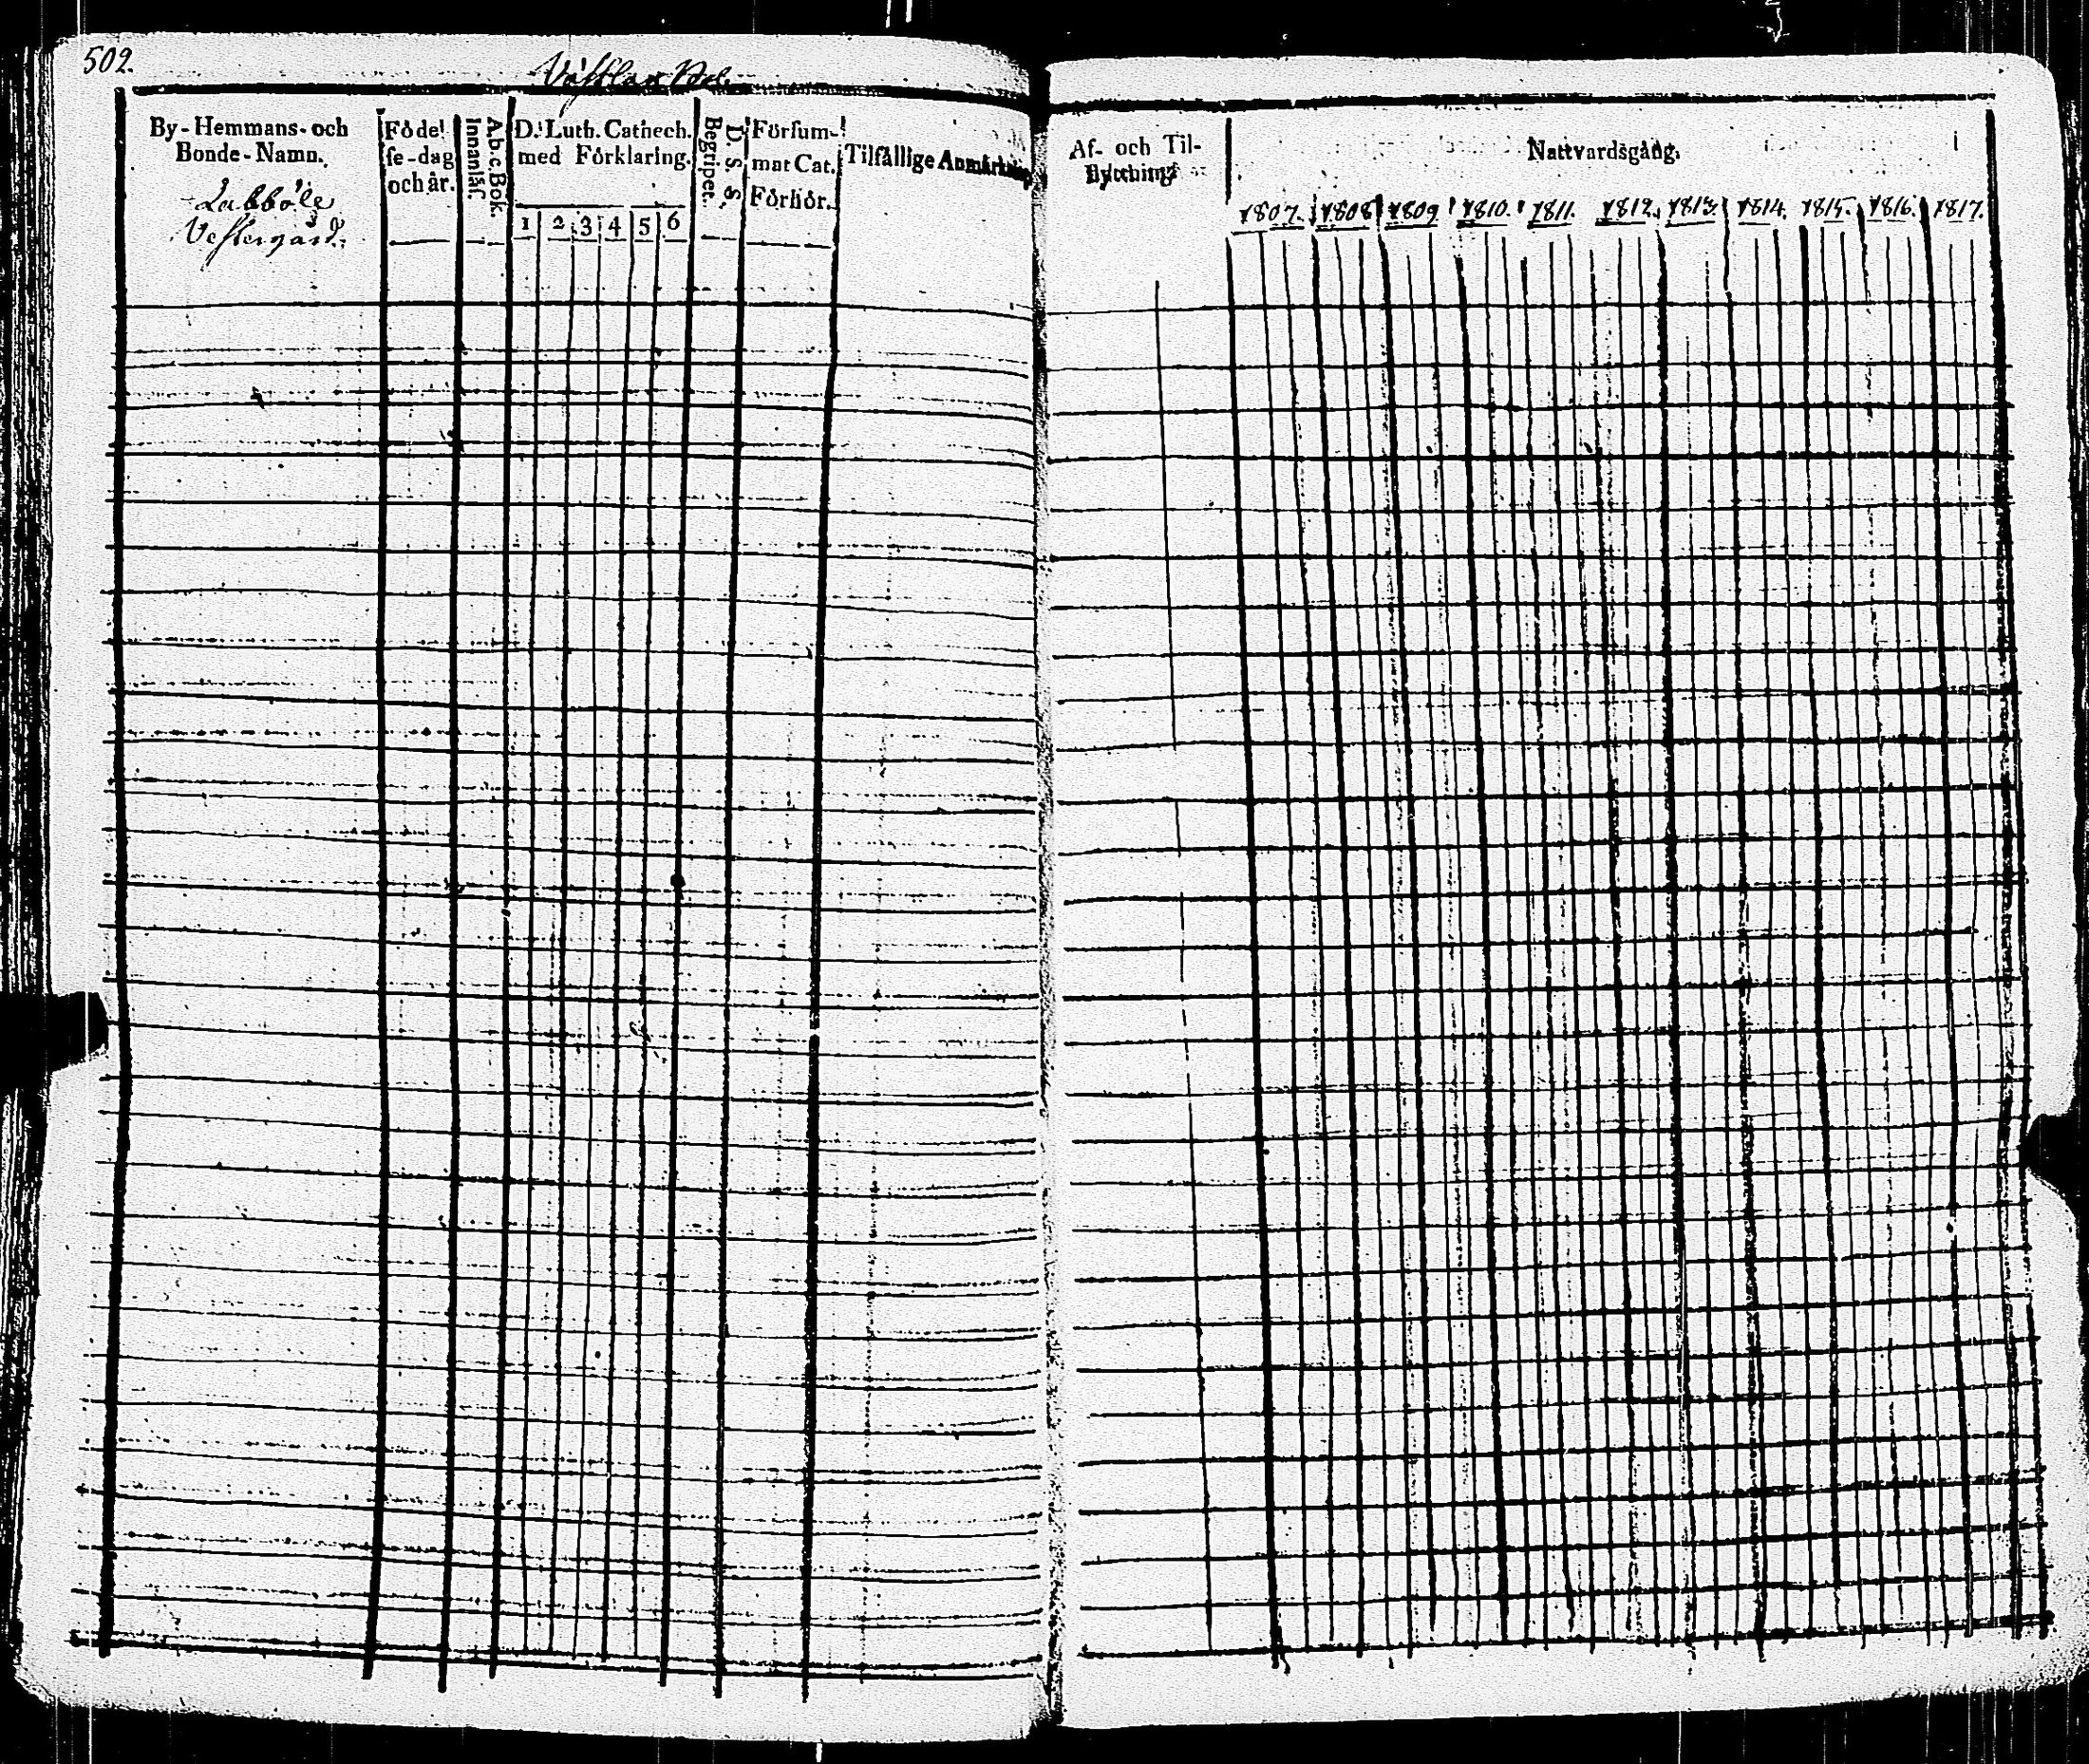 502.
By-Hemmans- och
Bonde-Namn.
Labböle
Vestergård.
Födel
se-dag
och år.
A.b.c. Bok.
Innanläs.
D:r Luth. Cathech.
med Förklaring.
1 2 3 4 5 6
D. S. S.
Begripet.
Försum-
mat Cat.
Förhör.
Tilfällige Anmärkning
Af- och Til-
flyttning
Nattvardsgång.
1807. 1808 1809 1810. 1811. 1812. 1813. 1814. 1815. 1816. 1817.